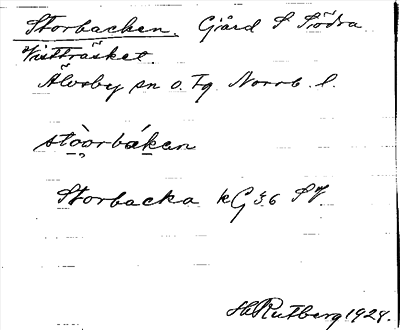 Storbacken. Gård S Södra
Vistträsket.
Älvsby sn o. Tg Norrb. l.
stòorbákan
Storbacka kG 36
H Rutberg 1924.